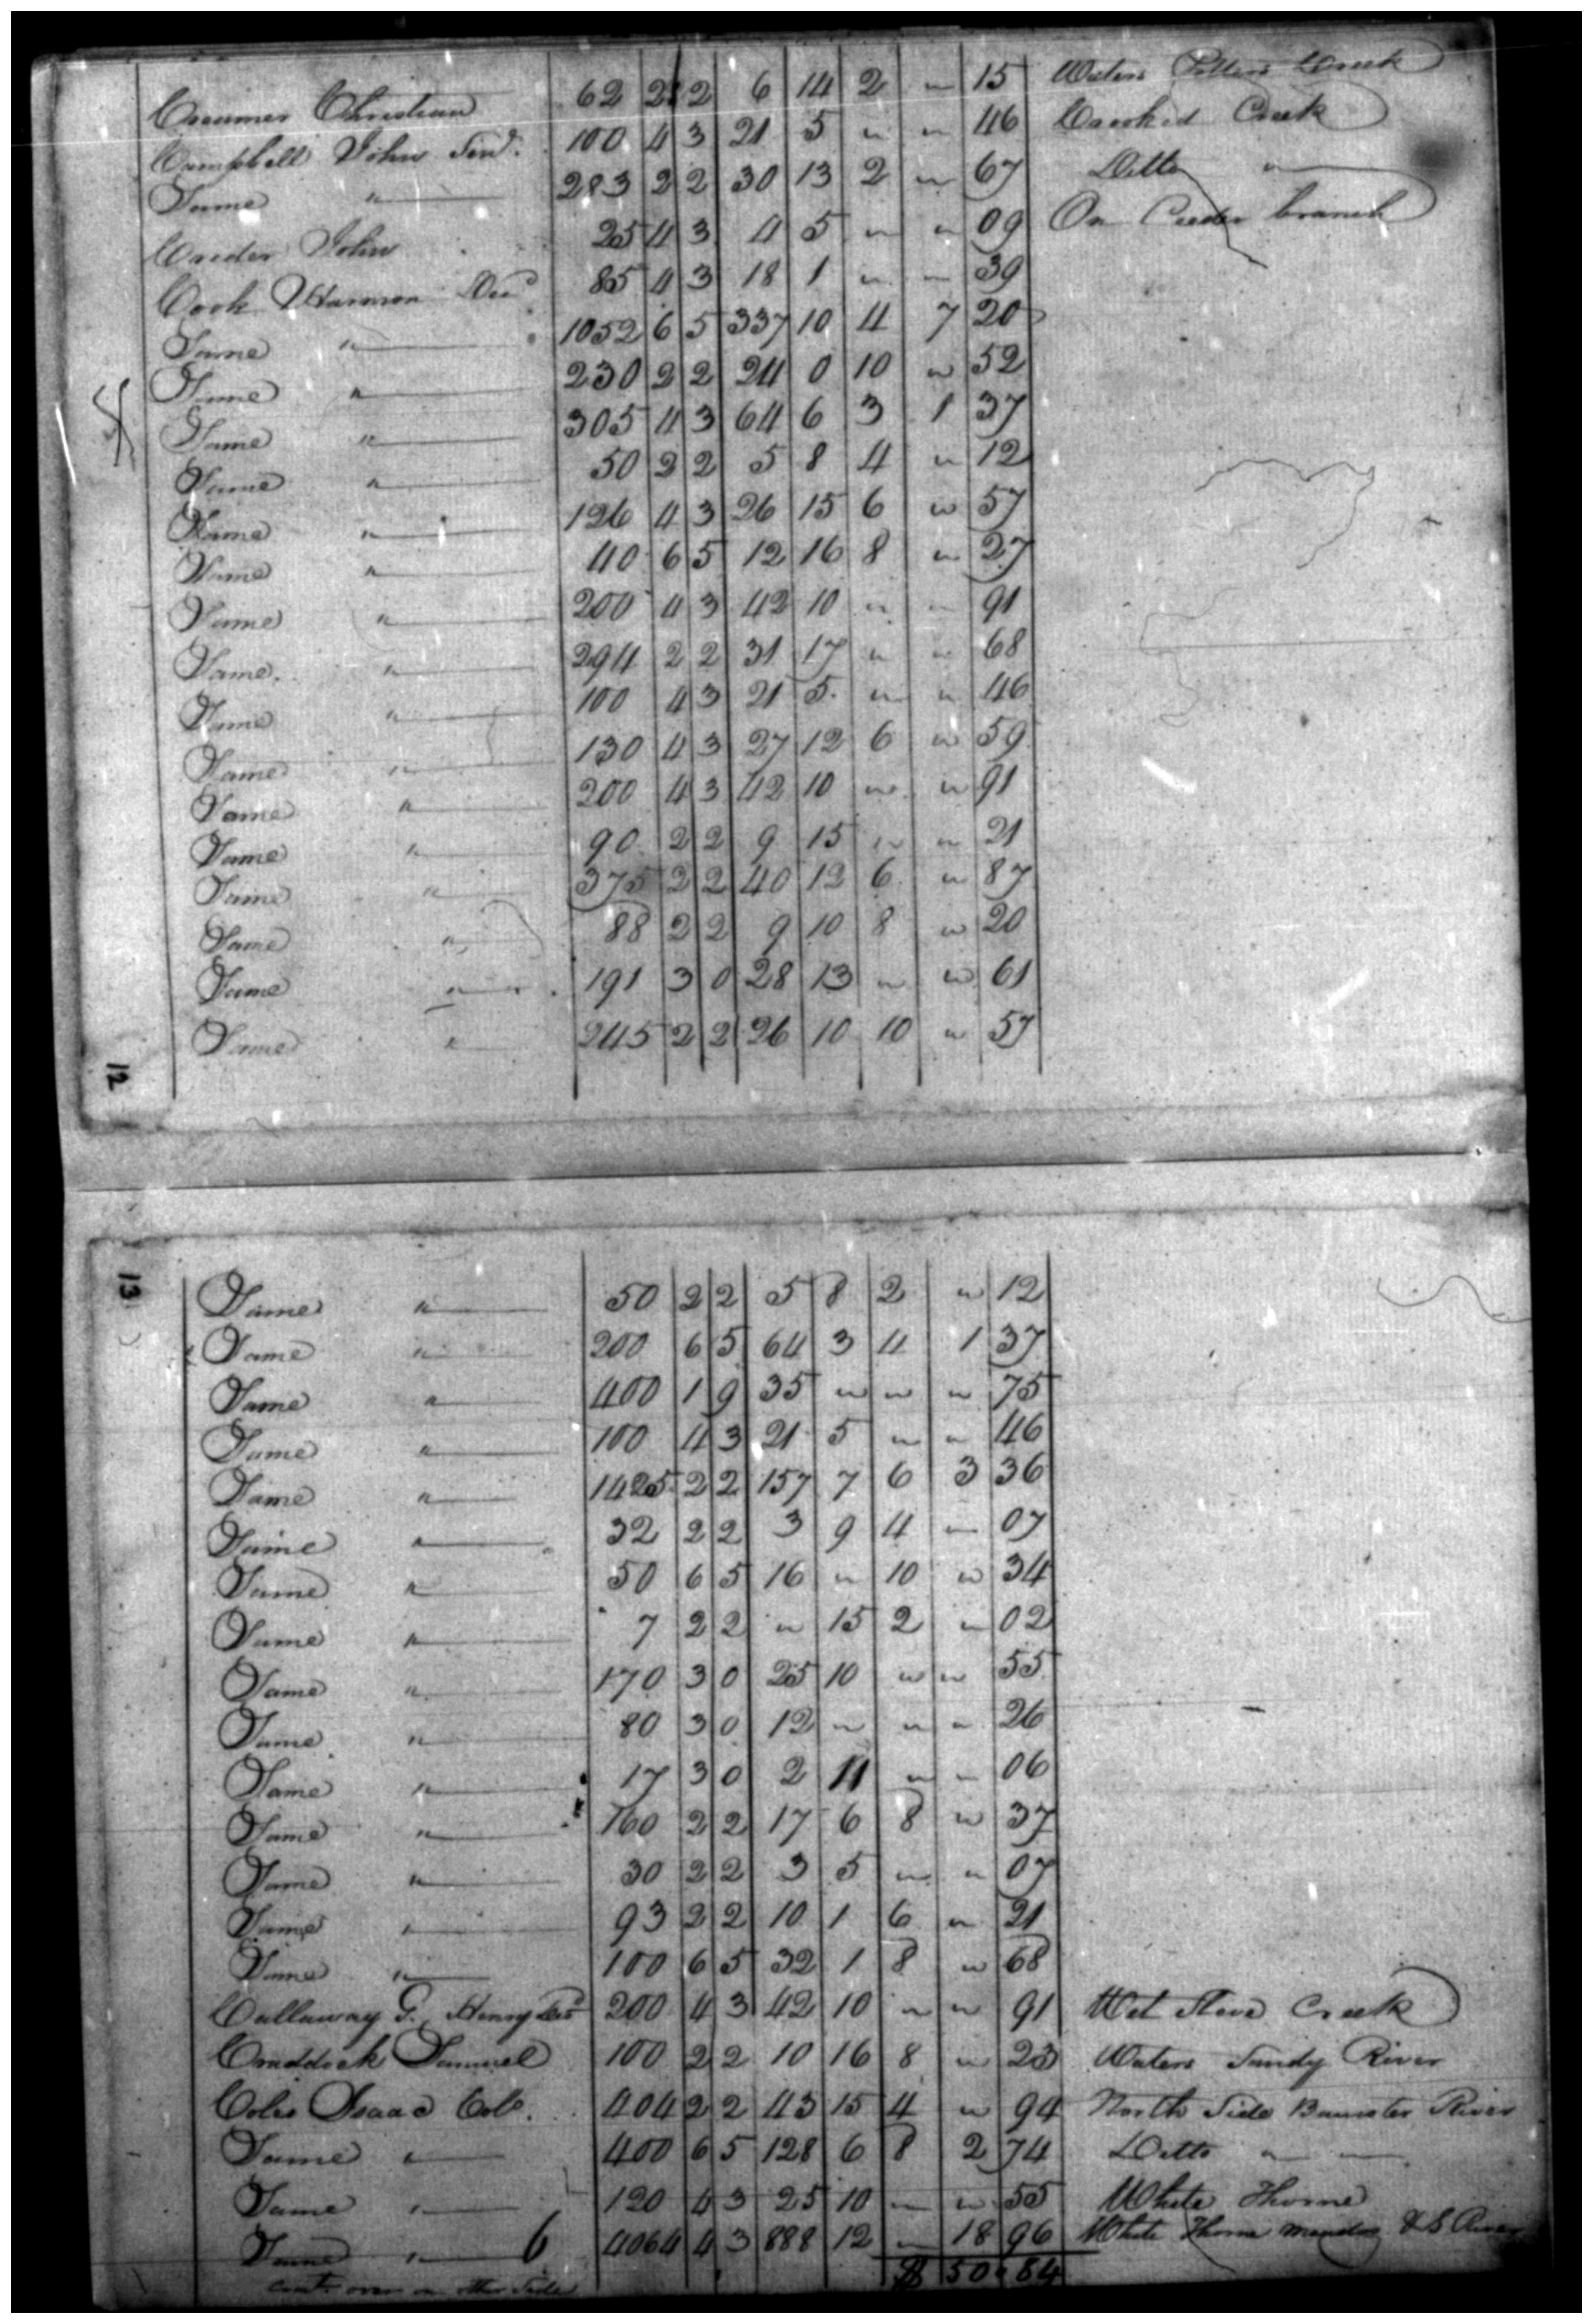 Creamer Christian 62 2 2 6 14 2 " 15 Waters Potters Creek
Campbell John Senr. 100 4 3 21 5 " " 46 Crooked Creek
Same " 283 2 2 30 13 2 " 67 Ditto "
Crider John 25 4 3 4 5 " " 09 On Ceeder branch
Cook Harmon Decd 85 4 3 18 1 " " 39
Same " 1052 6 5 337 10 4 7 20
Same " 230 2 2 24 0 10 " 52
Same " 305 4 3 64 6 3 1 37
Same " 50 2 2 5 8 4 " 12
Same " 126 4 3 26 15 6 " 57
Same " 40 6 5 12 16 8 " 27
Same " 200 4 3 42 10 " " 91
Same " 294 2 2 31 17 " " 68
Same " 100 4 3 21 5 " " 46
Same " 130 4 3 27 12 6 " 59
Same " 200 4 3 42 10 " " 91
Same " 90 2 2 9 15 " " 21
Same " 375 2 2 40 12 6 " 87
Same " 88 2 2 9 10 8 " 20
Same " 191 3 0 28 13 " " 61
Same " 245 2 2 26 10 10 " 57
12
13
Same " 50 2 2 5 8 2 " 12
Same " 200 6 5 64 3 4 1 37
Same " 400 1 9 35 " " " 75
Same " 100 4 3 21 5 " " 46
Same " 1425 2 2 157 7 6 3 36
Same " 32 2 2 3 9 4 " 07
Same " 50 6 5 16 " 10 " 34
Same " 7 2 2 " 15 2 " 02
Same " 170 3 0 25 10 " " 55
Same " 80 3 0 12 " " " 26
Same " 17 3 0 2 11 " " 06
Same " 160 2 2 17 6 8 " 37
Same " 30 2 2 3 5 " " 07
Same " 93 2 2 10 1 6 " 21
Same " 100 6 5 32 1 8 " 68
Callaway G. Henry Decd 200 4 3 42 10 " " 91 Wet Sleve Creek
Craddock Samuel 100 2 2 10 16 8 " 23 Waters Sandy River
Coles Isaac Colo. 404 2 2 43 15 4 " 94 North Side Banister River
Same " 400 6 5 128 6 8 2 74 Ditto "
Same " 120 4 3 25 10 " " 55 White Thorne
Same " 6 4064 4 3 888 12 " 18 96 White Thorn Meadow & S River
contd over on other Side $ 50 " 64